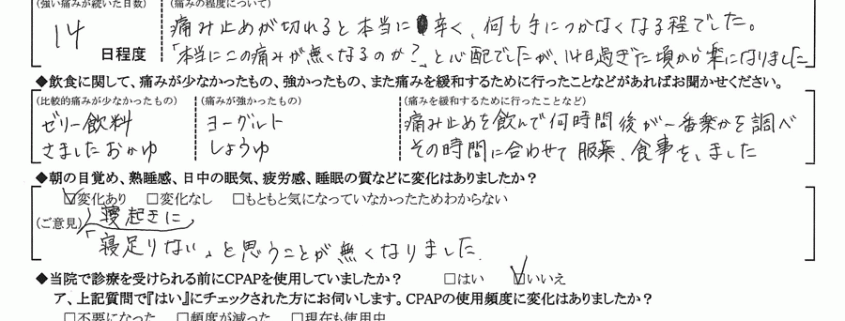 (強い痛みが続いた日数) (痛みの程度について)
14 日程度
痛み止めが切れると本当に辛く、何も手につかなくなる程でした。
「本当にこの痛みが無くなるのか?」と心配でしたが、14日過ぎた頃から楽になりました
◆飲食に関して、痛みが少なかったもの、強かったもの、また痛みを緩和するために行ったことなどがあればお聞かせください。
(比較的痛みが少なかったもの) (痛みが強かったもの) (痛みを緩和するために行ったことなど)
ゼリー飲料 ヨーグルト 痛み止めを飲んで何時間後が一番楽かを調べ
さましたおかゆ しょうゆ その時間に合わせて服薬、食事をしました
◆朝の目覚め、熟睡感、日中の眠気、疲労感、睡眠の質などに変化はありましたか?
☑変化あり □変化なし □もともと気になっていなかったためわからない
(ご意見) 寝起きに
「寝足りない」と思うことが無くなりました.
◆当院で診療を受けられる前にCPAPを使用していましたか? □はい ☑いいえ
ア、上記質問で『はい』にチェックされた方にお伺いします。CPAPの使用頻度に変化はありましたか?
□不要になった □頻度が減った □現在も使用中